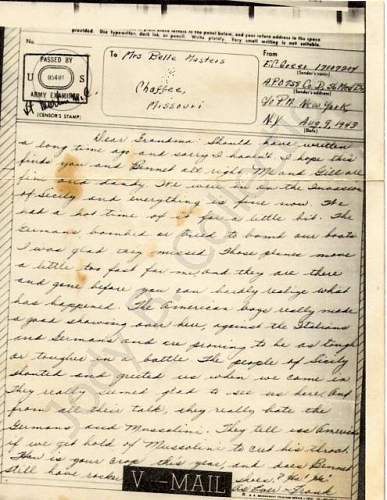 provided. Use typewriter, dark ink, or pencil. Write plainly. Very small writing is not suitable.
No.
PASSED BY
U S
ARMY EXAMINER
(CENSOR'S STAMP)
To Mrs Belle Masters
Chaffee,
Missouri
From
(Sender's name)
(Sender's address)
New York
N.Y. Aug 9, 1943
(Date)
Dear Grandma: Should have written
a long time ago and sorry I haven't. I hope this
finds you and Bennet all right. Me and Bill are
fine and dandy. We were in on the Invasion
of Sicily and everything is fine now. We
had a hot time of it for a little bit. The
Germans bombed or tried to bomb our boats
I was glad they missed. Those planes move
a little too fast for me, and they are there
and gone before you can hardly realize what
has happened. The American boys really made
a good showing over here, against the Italians
and Germans and are proving to be as tough
or tougher in battle. The people of Sicily
shouted and greeted us when we came in
They really seemed glad to see us here. And
from all their talk, they really hate the
Germans and Mussolini. They tell us Americans
if we get hold of Mussolini to cut his throat.
How is your crop this year, and does Bennet
still have
V-MAIL
Love Frank